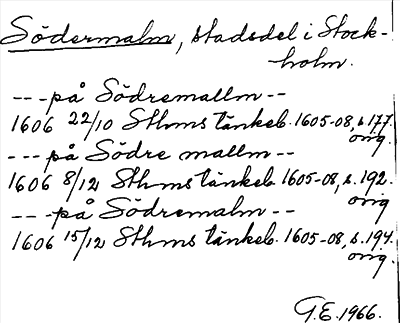 Södermalm, stadsdel i Stock-
holm.
---på Södremallm--
1606 22/10 Sthms tänkeb. 1605-08, s. 177.
orig.
---på Södre mallm--
1606 8/12 Sthms tänkeb. 1605-08, s. 192.
orig
---på Södremalm--
1606 15/12 Sthms tänkeb. 1605-08, s. 194.
orig.
G.E. 1966.